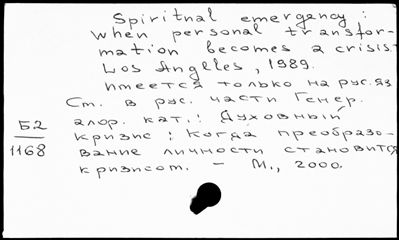 Spiritnal emergancy:
when personal transfor-
mation becomes a crisis.
Los Angeles, 1989.
Имеется только на рус.яз.
См. в рус. части Генер.
алф. кат.: Духовный
Б2
1168
кризис: Когда преобразо-
вание личности становится
кризисом. - М., 2000.